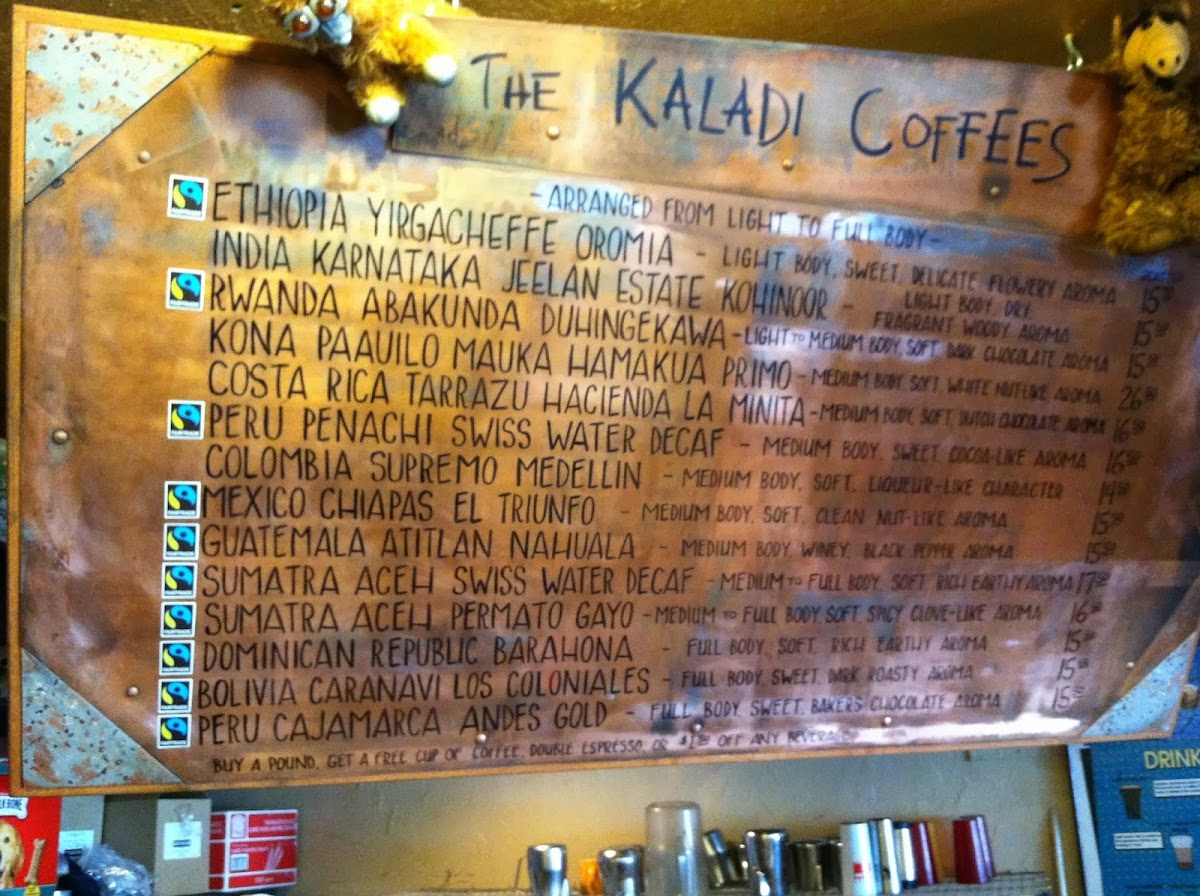 THE KALADI COFFEES
-ARRANGED FROM LIGHT TO FULL BODY-
ETHIOPIA YIRGACHEFFE OROMIA - LIGHT BODY, SWEET, DELICATE, FLOWERY AROMA 15
INDIA KARNATAKA JEELAN ESTATE KOHINOOR - LIGHT BODY, DRY,
FRAGRANT WOODY AROMA 15
RWANDA ABAKUNDA DUHINGEKAWA - LIGHT TO MEDIUM BODY, SOFT, DARK CHOCOLATE AROMA 15
KONA PAAUILO MAUKA HAMAKUA PRIMO - MEDIUM BODY, SOFT, WHITE NUTLIKE AROMA 26
COSTA RICA TARRAZU HACIENDA LA MINITA - MEDIUM BODY, SOFT, DUTCH CHOCOLATE AROMA 16
PERU PENACHI SWISS WATER DECAF - MEDIUM BODY, SWEET COCOA-LIKE AROMA 16
COLOMBIA SUPREMO MEDELLIN - MEDIUM BODY, SOFT, LIQUEUR-LIKE CHARACTER 14
MEXICO CHIAPAS EL TRIUNFO - MEDIUM BODY, SOFT, CLEAN NUT-LIKE AROMA 15
GUATEMALA ATITLAN NAHUALA - MEDIUM BODY, WINEY, BLACK PEPPER AROMA 15
SUMATRA ACEH SWISS WATER DECAF - MEDIUM TO FULL BODY, SOFT, RICH EARTHY AROMA 17
SUMATRA ACEH PERMATO GAYO - MEDIUM TO FULL BODY SOFT SPICY CLOVE-LIKE AROMA 16
DOMINICAN REPUBLIC BARAHONA - FULL BODY, SOFT, RICH EARTHY AROMA 15
BOLIVIA CARANAVI LOS COLONIALES - FULL BODY, SWEET, DARK ROASTY AROMA 15
PERU CAJAMARCA ANDES GOLD - FULL BODY, SWEET, BAKERS CHOCOLATE AROMA 15
BUY A POUND, GET A FREE CUP OF COFFEE, DOUBLE ESPRESSO, OR OFF ANY BEVERAGE
FAIRTRADE
BONE
DRINK